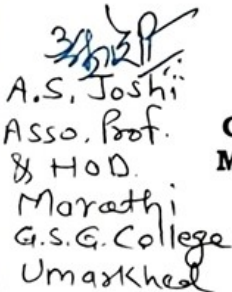 A.S. Joshi
Asso. Prof.
& HOD.
Marathi
G.S.G. College
Umarkhed